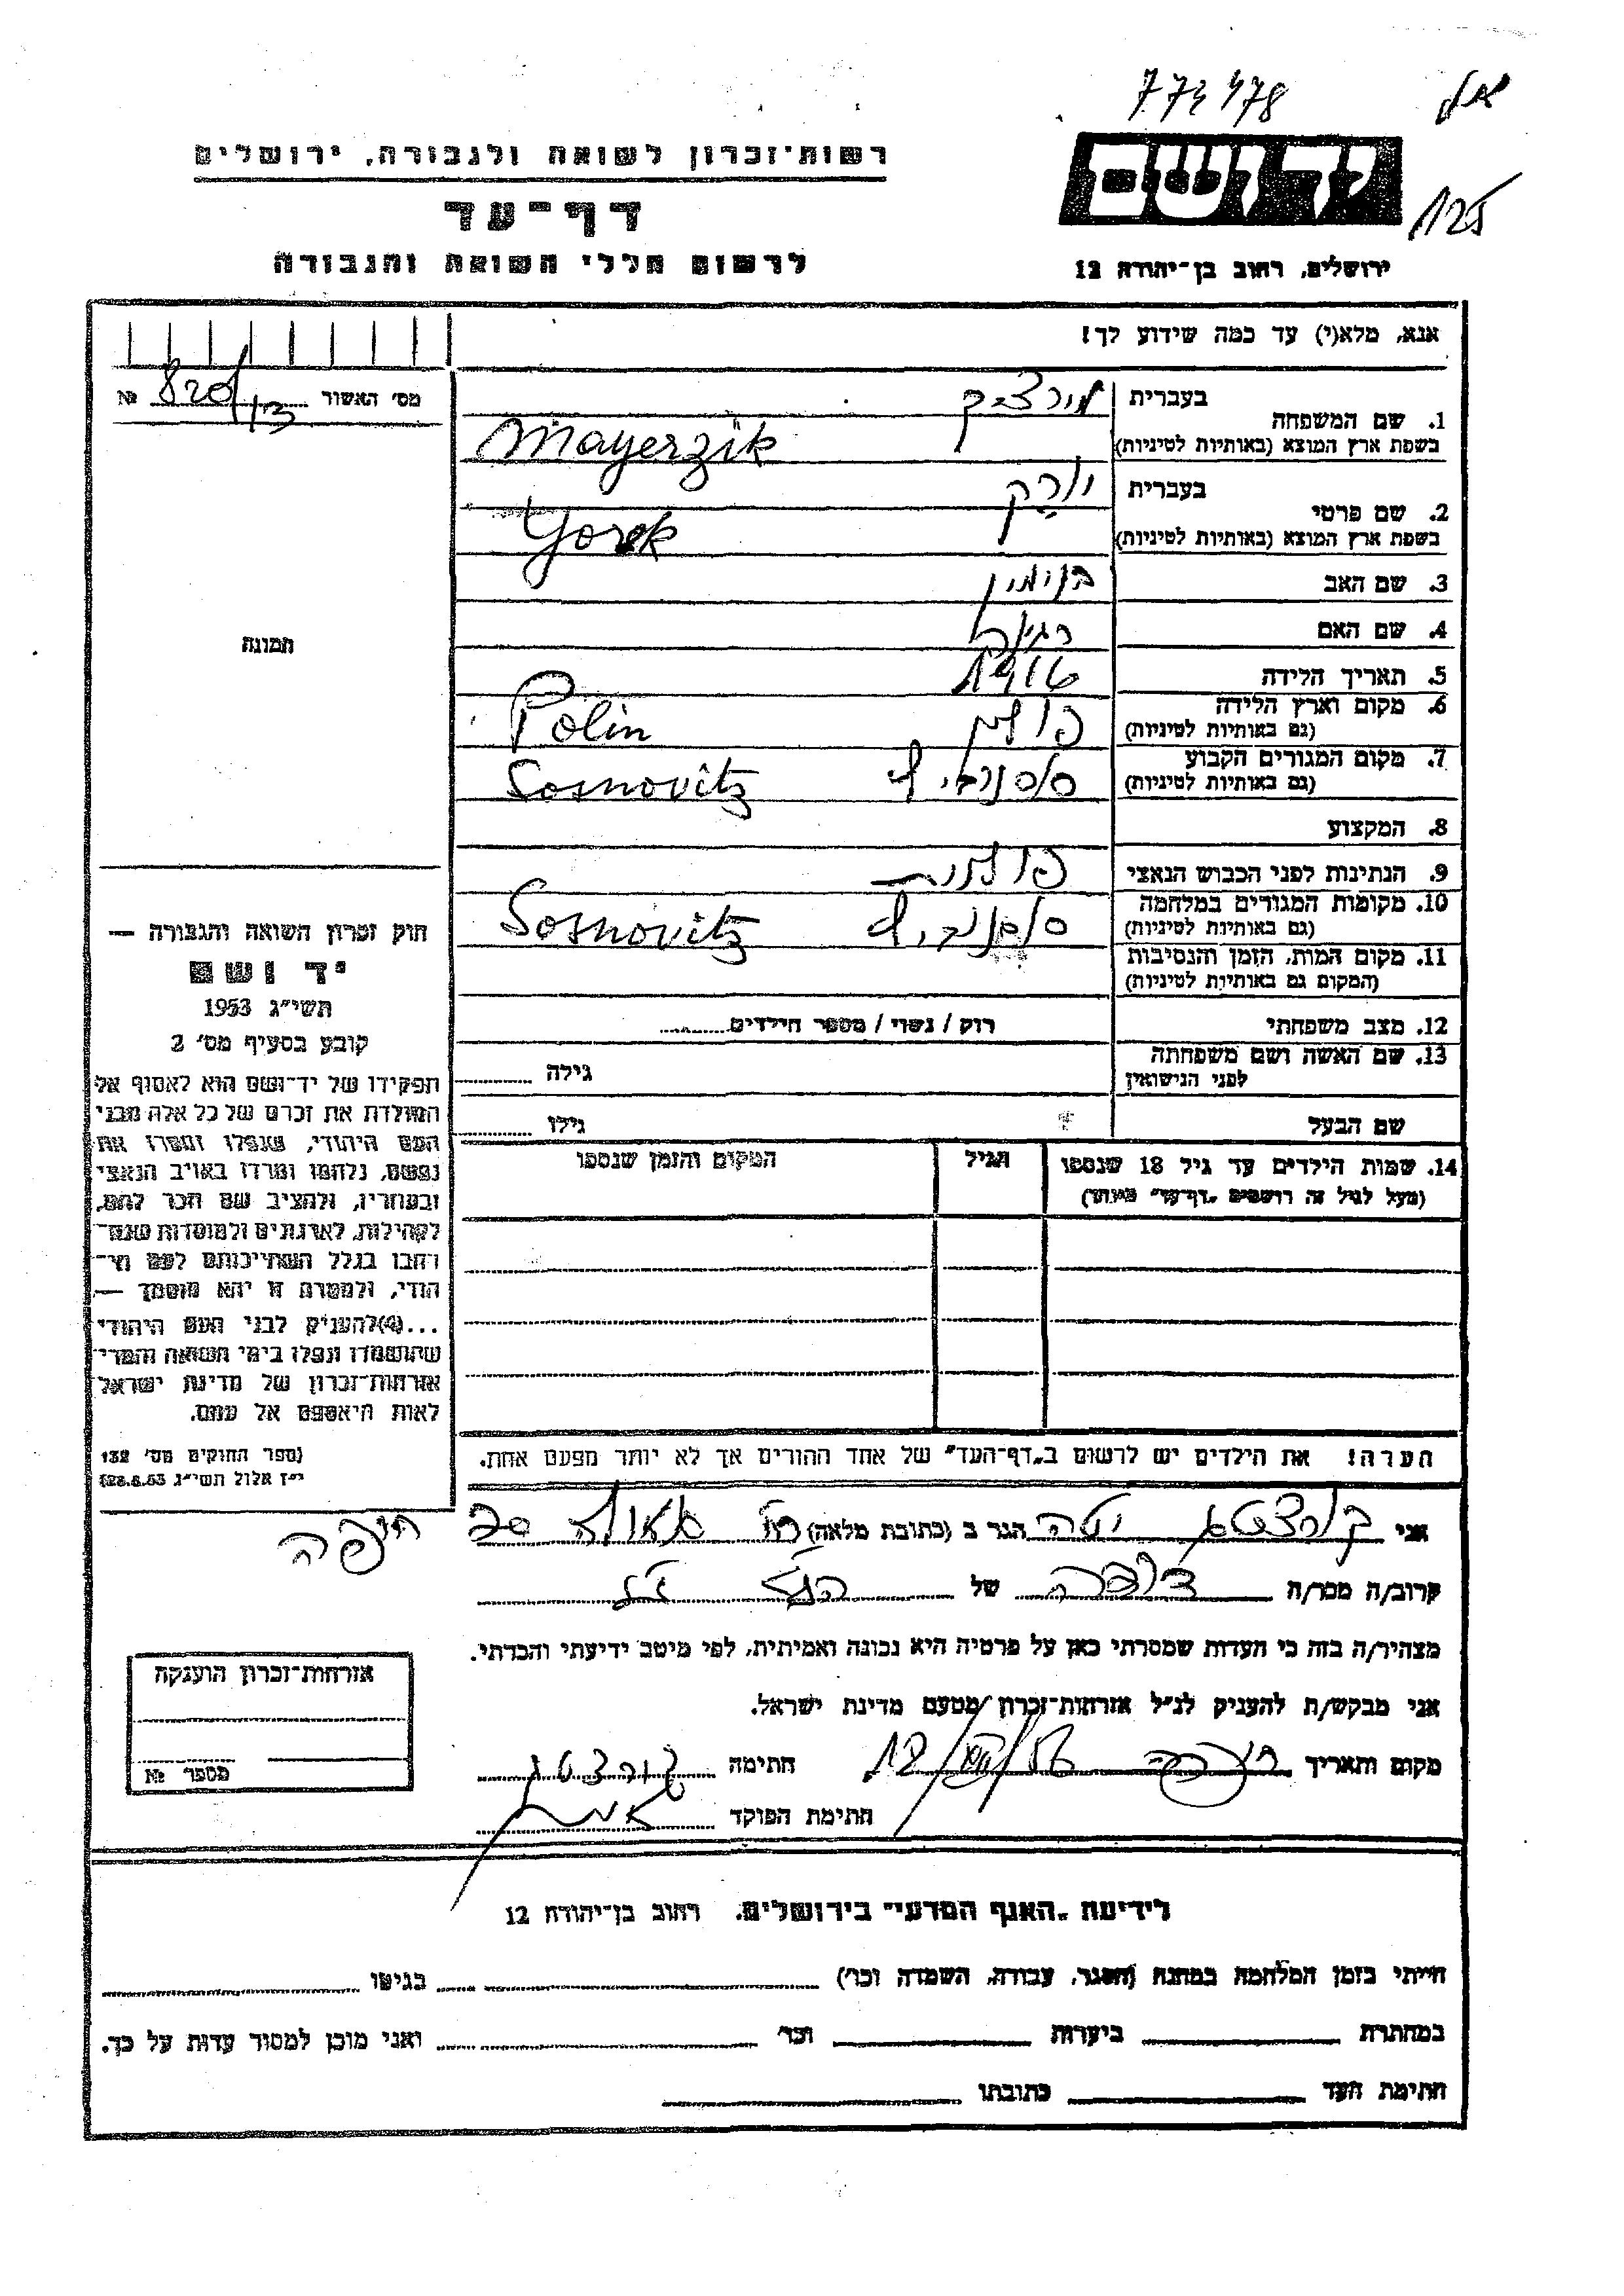 773478
125
יד ושם
רשות־זכרון לשואה ולגבורה, ירושלים
דף־עד
לרשום חללי השואה והגבורה
ירושלים, רחוב בן־יהודה 12
אנא, מלא(י) עד כמה שידוע לך!
מס׳ האשור № 820/
1. שם המשפחה בעברית
בשפת ארץ המוצא (באותיות לטיניות) Mayerzik
2. שם פרטי בעברית יורק
בשפת ארץ המוצא (באותיות לטיניות) Yorek
3. שם האב בנימין
4. שם האם רגינה
5. תאריך הלידה 1916
6. מקום וארץ הלידה פולין Polin
(גם באותיות לטיניות)
7. מקום המגורים הקבוע סוסנוביץ Sosnovitz
(גם באותיות לטיניות)
8. המקצוע
9. הנתינות לפני הכבוש הנאצי פולנית
10. מקומות המגורים במלחמה סוסנוביץ Sosnovitz
(גם באותיות לטיניות)
11. מקום המות, הזמן והנסיבות
(המקום גם באותיות לטיניות)
12. מצב משפחתי רוק / נשוי / מספר הילדים
13. שם האשה ושם משפחתה
לפני הנישואין גילה
שם הבעל גילו
14. שמות הילדים עד גיל 18 שנספו הגיל המקום והזמן שנספו
(מעל לגיל זה רושמים „דף־עד״ מיוחד)
הערה! את הילדים יש לרשום ב„דף־העד״ של אחד ההורים אך לא יותר מפעם אחת.
תמונה
חוק זכרון השואה והגבורה —
יד ושם
תשי״ג 1953
קובע בסעיף מס׳ 2
תפקידו של יד־ושם הוא לאסוף אל
המולדת את זכרם של כל אלה מבני
העם היהודי, שנפלו ומסרו את
נפשם, נלחמו ומרדו באויב הנאצי
ובעוזריו, ולהציב שם וזכר להם,
לקהילות, לארגונים ולמוסדות שנח־
רבו בגלל השתייכותם לעם הי־
הודי, ולמטרה זו יהא מוסמך —
...(4)להעניק לבני העם היהודי
שהושמדו ונפלו בימי השואה והמרי
אזרחות־זכרון של מדינת ישראל
לאות היאספם אל עמם.
(ספר החוקים מס׳ 132
י״ז אלול תשי״ג 28.8.53)
אני יטה הגר ב (כתובת מלאה) רח׳ גאולה 20 חיפה
קרוב/ה מכר/ה של הנ״ל
מצהיר/ה בזה כי העדות שמסרתי כאן על פרטיה היא נכונה ואמיתית, לפי מיטב ידיעתי והכרתי.
אני מבקש/ת להעניק לנ״ל אזרחות־זכרון מטעם מדינת ישראל.
מקום ותאריך חיפה חתימה
חתימת הפוקד
אזרחות־זכרון הוענקה
מספר №
לידיעת „האגף המדעי״ בירושלים, רחוב בן־יהודה 12
הייתי בזמן המלחמה במחנה (הסגר, עבודה, השמדה וכו׳) בגיטו
במחתרת ביערות וכו׳ ואני מוכן למסור עדות על כך.
חתימת העד כתובתו